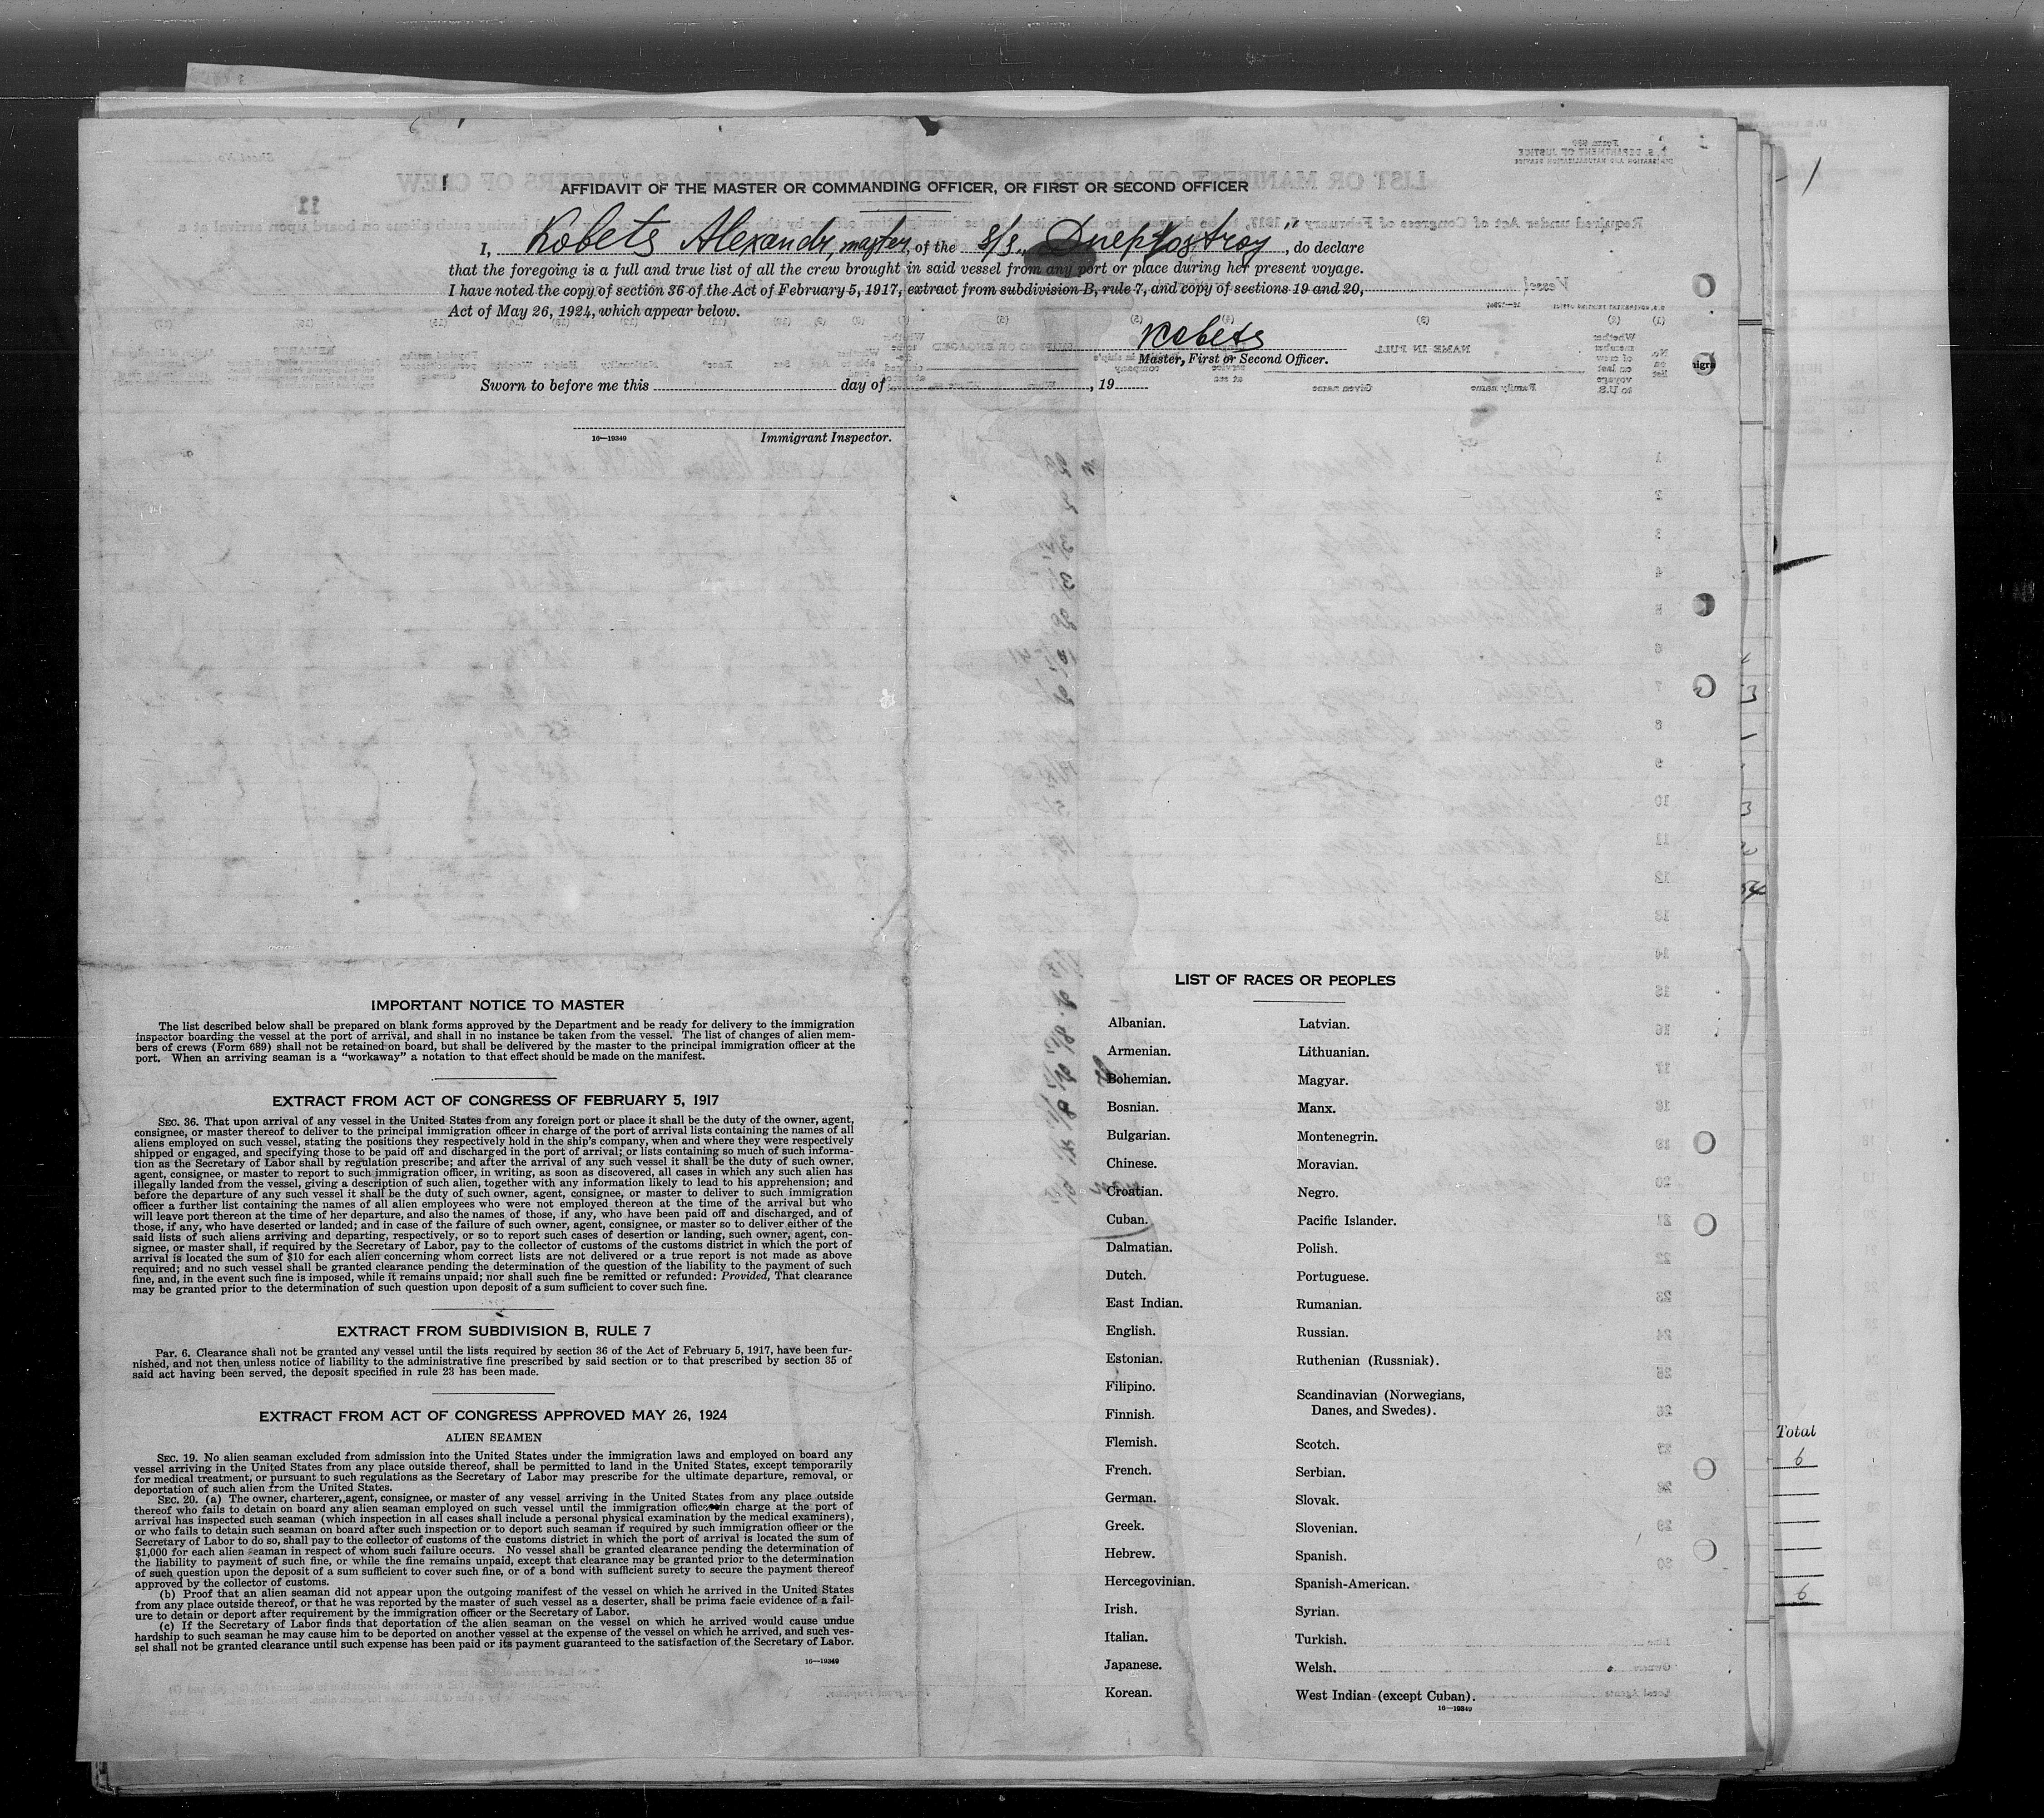 AFFIDAVIT OF THE MASTER OR COMMANDING OFFICER, OR FIRST OR SECOND OFFICER
I, Kobets Alexandr, master, of the s/s "Dneprostroy", do declare
that the foregoing is a full and true list of all the crew brought in said vessel from any port or place during her present voyage.
I have noted the copy of section 36 of the Act of February 5, 1917, extract from subdivision B, rule 7, and copy of sections 19 and 20,
Act of May 26, 1924, which appear below.
Kobets
Master, First or Second Officer.
Sworn to before me this day of , 19
16—19349 Immigrant Inspector.
IMPORTANT NOTICE TO MASTER
The list described below shall be prepared on blank forms approved by the Department and be ready for delivery to the immigration
inspector boarding the vessel at the port of arrival, and shall in no instance be taken from the vessel. The list of changes of alien mem-
bers of crews (Form 689) shall not be retained on board, but shall be delivered by the master to the principal immigration officer at the
port. When an arriving seaman is a "workaway" a notation to that effect should be made on the manifest.
EXTRACT FROM ACT OF CONGRESS OF FEBRUARY 5, 1917
SEC. 36. That upon arrival of any vessel in the United States from any foreign port or place it shall be the duty of the owner, agent,
consignee, or master thereof to deliver to the principal immigration officer in charge of the port of arrival lists containing the names of all
aliens employed on such vessel, stating the positions they respectively hold in the ship's company, when and where they were respectively
shipped or engaged, and specifying those to be paid off and discharged in the port of arrival; or lists containing so much of such informa-
tion as the Secretary of Labor shall by regulation prescribe; and after the arrival of any such vessel it shall be the duty of such owner,
agent, consignee, or master to report to such immigration officer, in writing, as soon as discovered, all cases in which any such alien has
illegally landed from the vessel, giving a description of such alien, together with any information likely to lead to his apprehension; and
before the departure of any such vessel it shall be the duty of such owner, agent, consignee, or master to deliver to such immigration
officer a further list containing the names of all alien employees who were not employed thereon at the time of the arrival but who
will leave port thereon at the time of her departure, and also the names of those, if any, who have been paid off and discharged, and of
those, if any, who have deserted or landed; and in case of the failure of such owner, agent, consignee, or master so to deliver either of the
said lists of such aliens arriving and departing, respectively, or so to report such cases of desertion or landing, such owner, agent, con-
signee, or master shall, if required by the Secretary of Labor, pay to the collector of customs of the customs district in which the port of
arrival is located the sum of $10 for each alien concerning whom correct lists are not delivered or a true report is not made as above
required; and no such vessel shall be granted clearance pending the determination of the question of the liability to the payment of such
fine, and, in the event such fine is imposed, while it remains unpaid; nor shall such fine be remitted or refunded: Provided, That clearance
may be granted prior to the determination of such question upon deposit of a sum sufficient to cover such fine.
EXTRACT FROM SUBDIVISION B, RULE 7
Par. 6. Clearance shall not be granted any vessel until the lists required by section 36 of the Act of February 5, 1917, have been fur-
nished, and not then unless notice of liability to the administrative fine prescribed by said section or to that prescribed by section 35 of
said act having been served, the deposit specified in rule 23 has been made.
EXTRACT FROM ACT OF CONGRESS APPROVED MAY 26, 1924
ALIEN SEAMEN
SEC. 19. No alien seaman excluded from admission into the United States under the immigration laws and employed on board any
vessel arriving in the United States from any place outside thereof, shall be permitted to land in the United States, except temporarily
for medical treatment, or pursuant to such regulations as the Secretary of Labor may prescribe for the ultimate departure, removal, or
deportation of such alien from the United States.
SEC. 20. (a) The owner, charterer, agent, consignee, or master of any vessel arriving in the United States from any place outside
thereof who fails to detain on board any alien seaman employed on such vessel until the immigration officer in charge at the port of
arrival has inspected such seaman (which inspection in all cases shall include a personal physical examination by the medical examiners),
or who fails to detain such seaman on board after such inspection or to deport such seaman if required by such immigration officer or the
Secretary of Labor to do so, shall pay to the collector of customs of the customs district in which the port of arrival is located the sum of
$1,000 for each alien seaman in respect of whom such failure occurs. No vessel shall be granted clearance pending the determination of
the liability to payment of such fine, or while the fine remains unpaid, except that clearance may be granted prior to the determination
of such question upon the deposit of a sum sufficient to cover such fine, or of a bond with sufficient surety to secure the payment thereof
approved by the collector of customs.
(b) Proof that an alien seaman did not appear upon the outgoing manifest of the vessel on which he arrived in the United States
from any place outside thereof, or that he was reported by the master of such vessel as a deserter, shall be prima facie evidence of a fail-
ure to detain or deport after requirement by the immigration officer or the Secretary of Labor.
(c) If the Secretary of Labor finds that deportation of the alien seaman on the vessel on which he arrived would cause undue
hardship to such seaman he may cause him to be deported on another vessel at the expense of the vessel on which he arrived, and such ves-
sel shall not be granted clearance until such expense has been paid or its payment guaranteed to the satisfaction of the Secretary of Labor.
16—19349
LIST OF RACES OR PEOPLES
Albanian.
Armenian.
Bohemian.
Bosnian.
Bulgarian.
Chinese.
Croatian.
Cuban.
Dalmatian.
Dutch.
East Indian.
English.
Estonian.
Filipino.
Finnish.
Flemish.
French.
German.
Greek.
Hebrew.
Hercegovinian.
Irish.
Italian.
Japanese.
Korean.
Latvian.
Lithuanian.
Magyar.
Manx.
Montenegrin.
Moravian.
Negro.
Pacific Islander.
Polish.
Portuguese.
Rumanian.
Russian.
Ruthenian (Russniak).
Scandinavian (Norwegians,
Danes, and Swedes).
Scotch.
Serbian.
Slovak.
Slovenian.
Spanish.
Spanish-American.
Syrian.
Turkish.
Welsh.
West Indian (except Cuban).
16—19349
Total
6
6